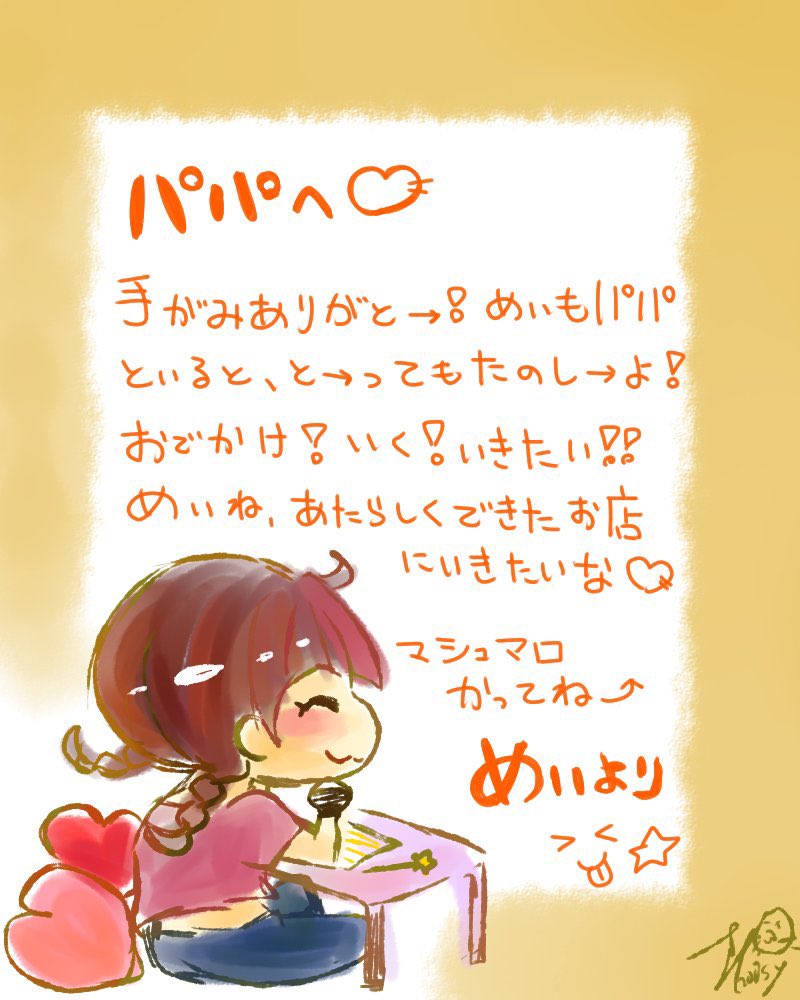 パパへ♡
手がみありがと→! めいもパパ
といると、と→ってもたのし→よ!
おでかけ!いく!いきたい!!
めいね、あたらしくできたお店
にいきたいな♡
マシュマロ
かってね⤴
めいより